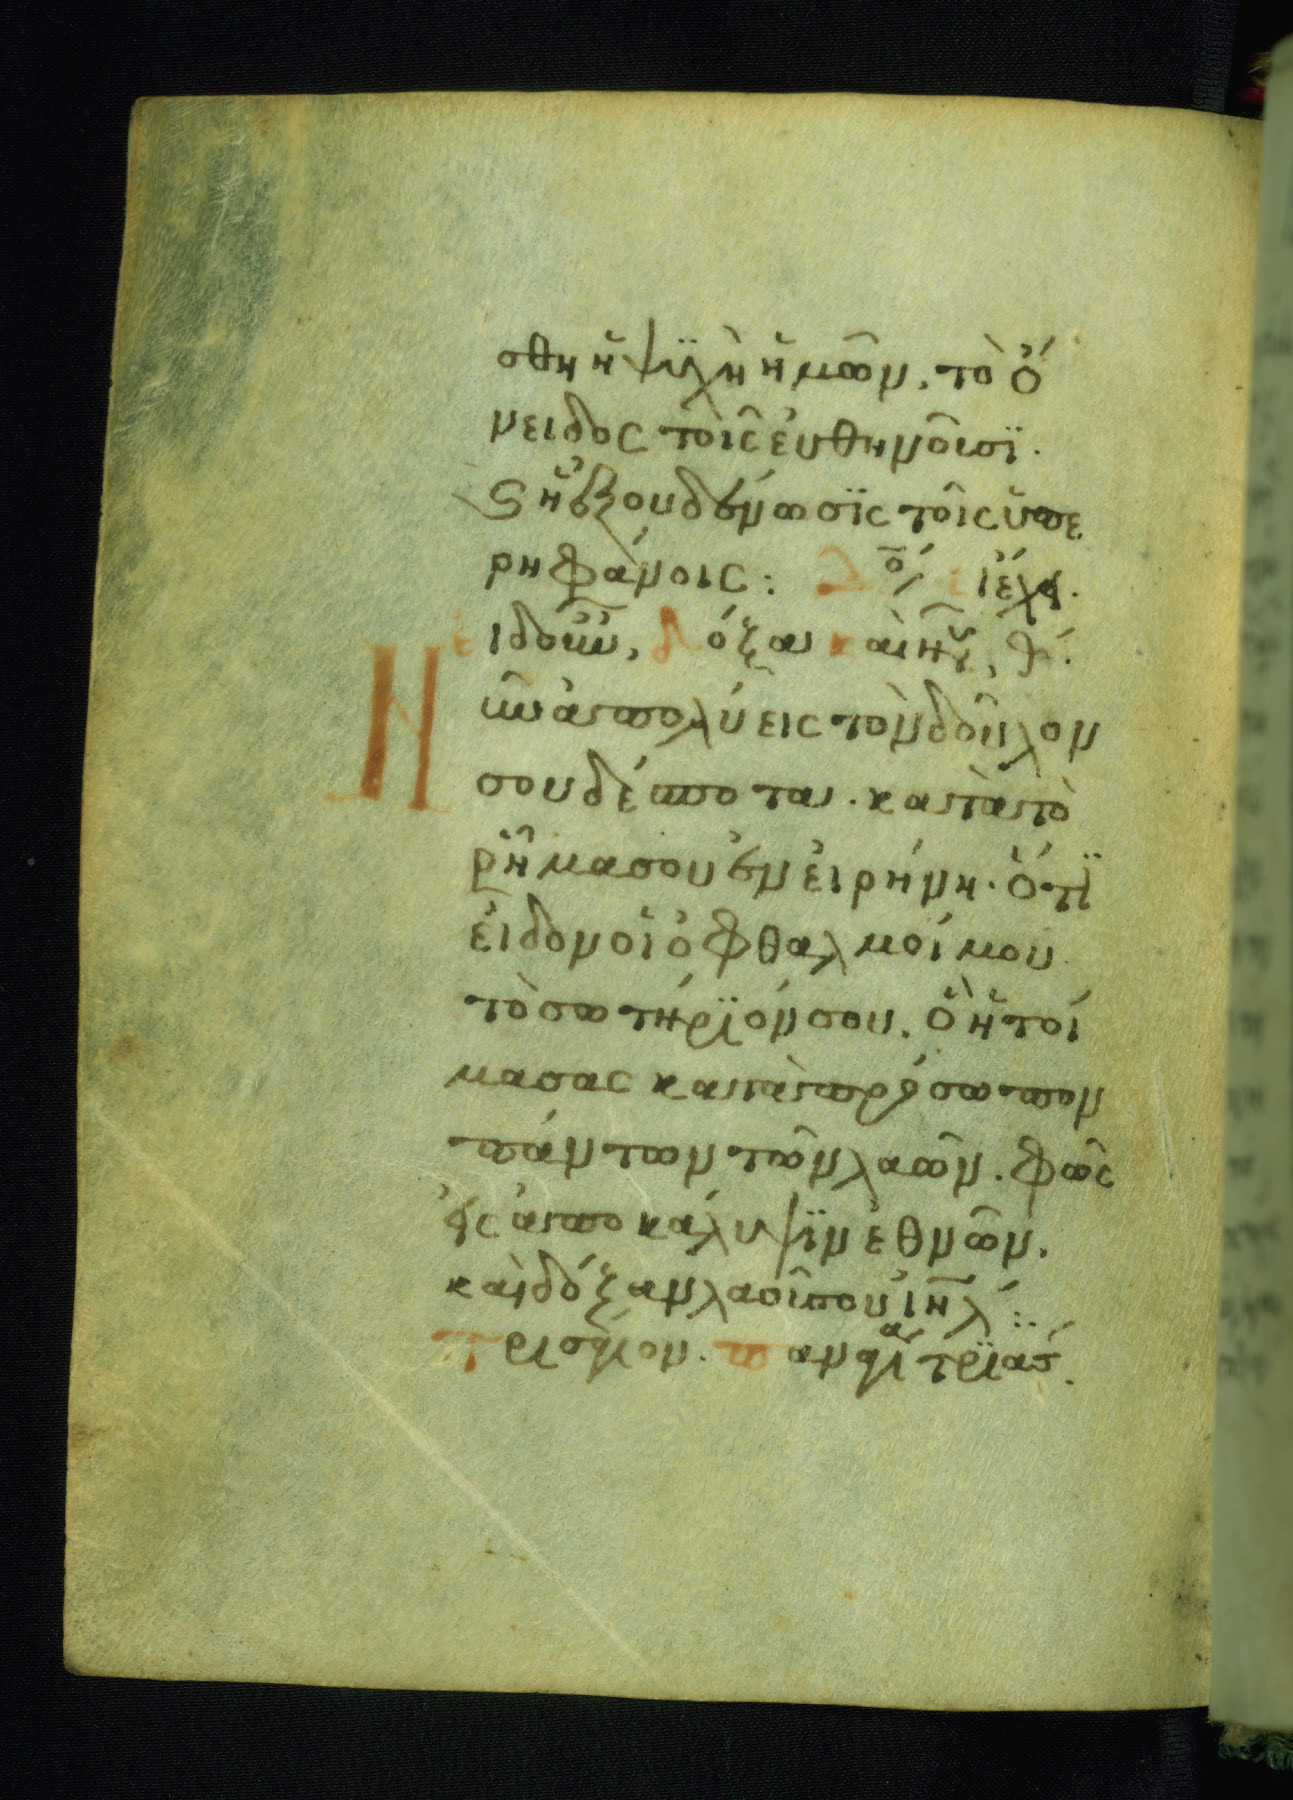 σθη ἡ ψϋχὴ ἡμῶν. τὸ ὄ
νειδος τοῖς εὐθηνοῦσϊ.
ϗ ἡ ἐξουδένωσϊς τοῖς ὑπε
ρηφάνοις:
δόξα και νῦν,
Νῦν ἀπολύεις τὸν δοῦλον
σου δέσποτα. κατὰ τὸ
ῥῆμα σου ἐν εἰρήνη. ὅτϊ
εἶδον οἱ ὀφθαλμοί μου
τὸ σωτήρϊόν σου. ὃ ἡτοί
μασας κατὰ πρόσωπον
πάντων τῶν λαῶν. φῶς
εἰς ἀποκάλυψϊν ἐθνῶν.
καὶ δόξαν λαοῦ σου ἰῆλ:
τρισάγιον. παναγία τρϊάς.